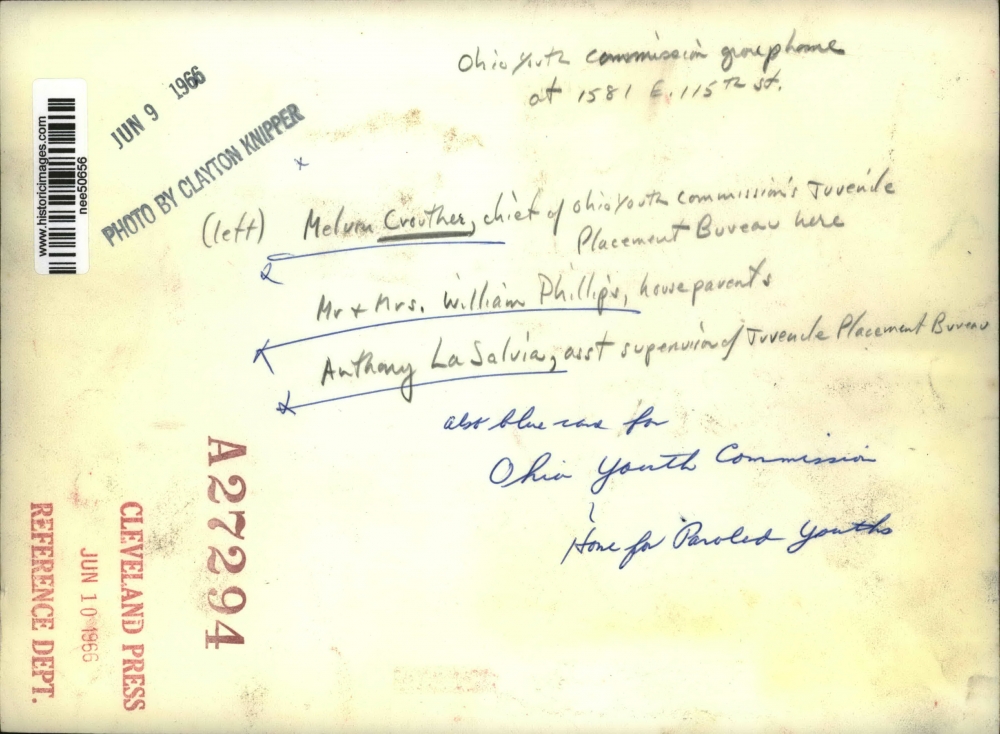 Ohio Youth commission group home
at 1581 E. 115TH st.
JUN 9 1966
PHOTO BY CLAYTON KNIPPER
x
www.historicimages.com
nee50656
(left) Melvin Crouther, chief of Ohio Youth commission's Juvenile
Placement Bureau here
Mr + Mrs. William Phillips, houseparents
Anthony La Salvia, asst supervisor of Juvenile Placement Bureau
also blue card for
Ohio Youth Commission
Home for Paroled Youths
A27294
CLEVELAND PRESS
JUN 10 1966
REFERENCE DEPT.